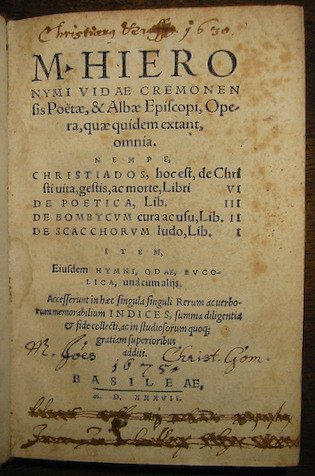 Christian 1630
M HIERO
NYMI VIDAE CREMONEN
sis Poëtæ, & Albæ Episcopi, Ope-
ra, quæ quidem extant,
omnia.
NEMPE,
CHRISTIADOS, hoc est, de Chri
sti uita, gestis, ac morte, Libri VI
DE POETICA, Lib. III
DE BOMBYCVM cura ac usu, Lib. II
DE SCACCHORVM ludo, Lib. I
ITEM,
Eiusdem HYMNI, ODAE, BVCO-
LICA, unà cum alijs.
Accesserunt in hæc singula singuli Rerum ac uerbo-
rum memorabilium INDICES, summa diligentia
& fide collecti, ac in studiosorum quoq;
gratiam superioribus
additi.
M. Joës Christ. Gom.
1675
BASILEAE,
M. D. XXXVII.